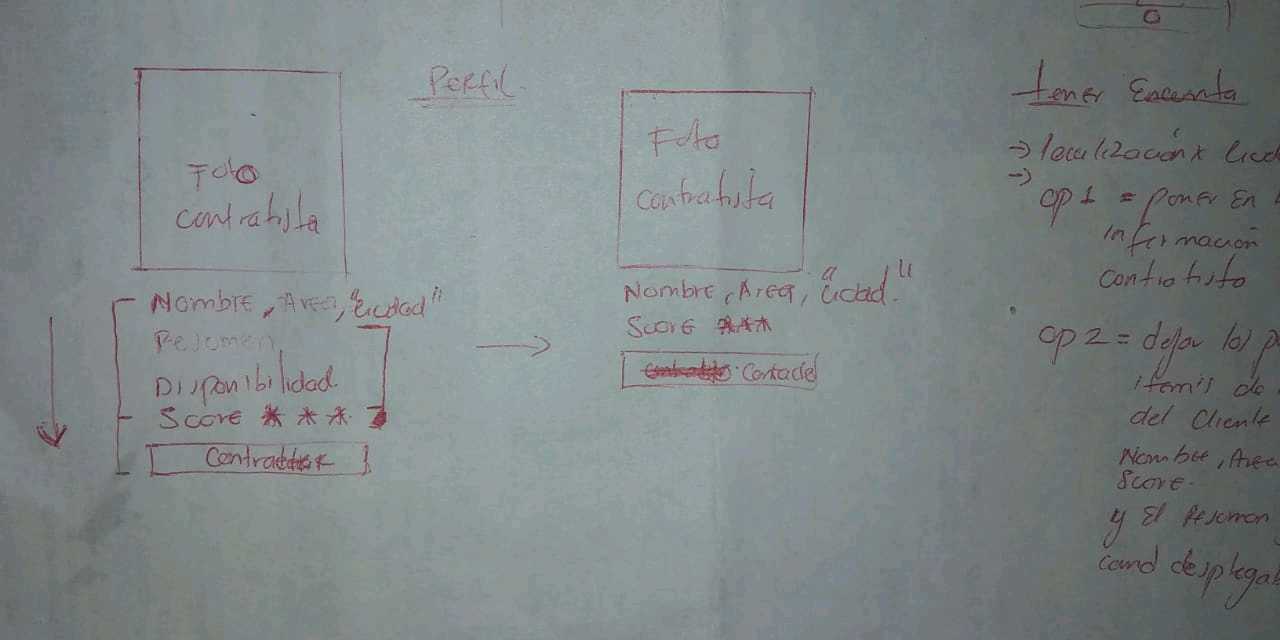 Perfil.
Foto
contratista
Nombre, Area, "Ciudad"
Resumen
Disponibilidad.
Score ***
Contratar
Foto
contratista
Nombre, Area, "Ciudad."
Score ***
Contacte
tener Encuenta
→ localización x
→
op 1 = poner En
información
contratista
op 2 = dejar los
items de
del Cliente
Nombre, Area
Score.
y El Resumen
como